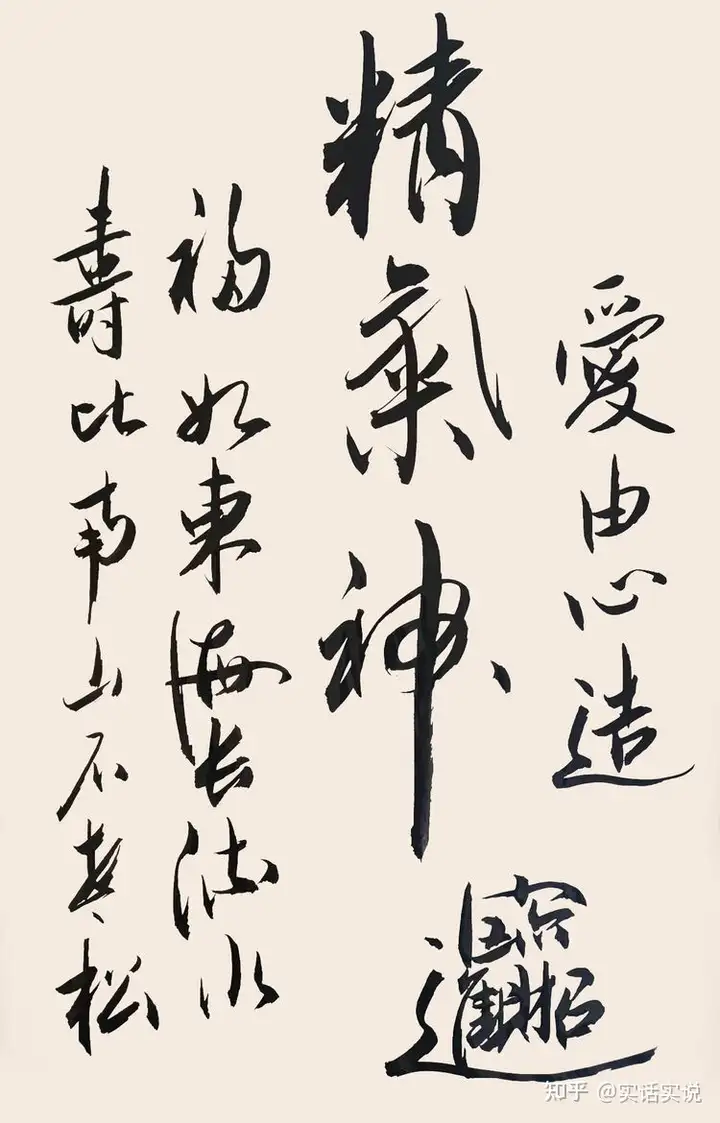 愛由心造
精氣神
招財進寶
福如東海长流水
壽比南山不老松
知乎 @实话实说